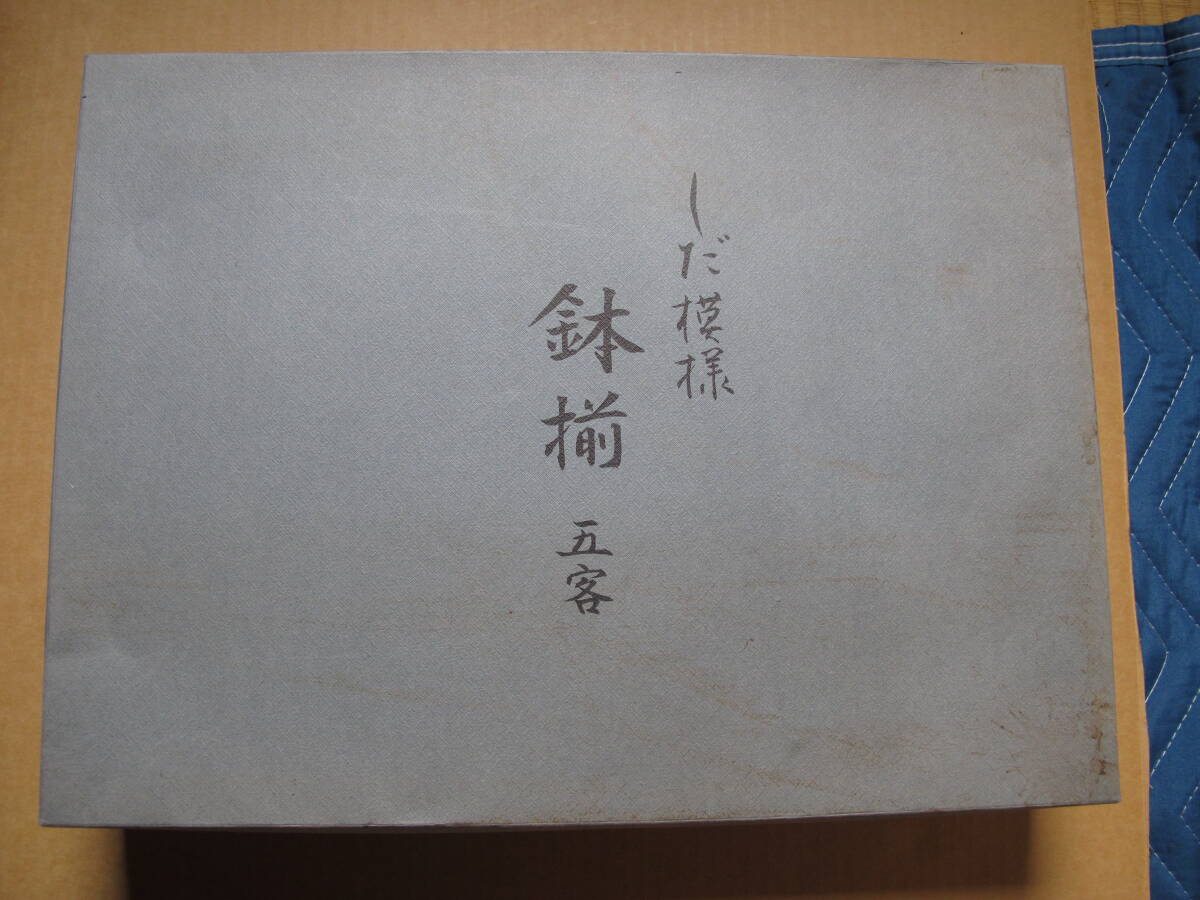 しだ模様
鉢揃 五客